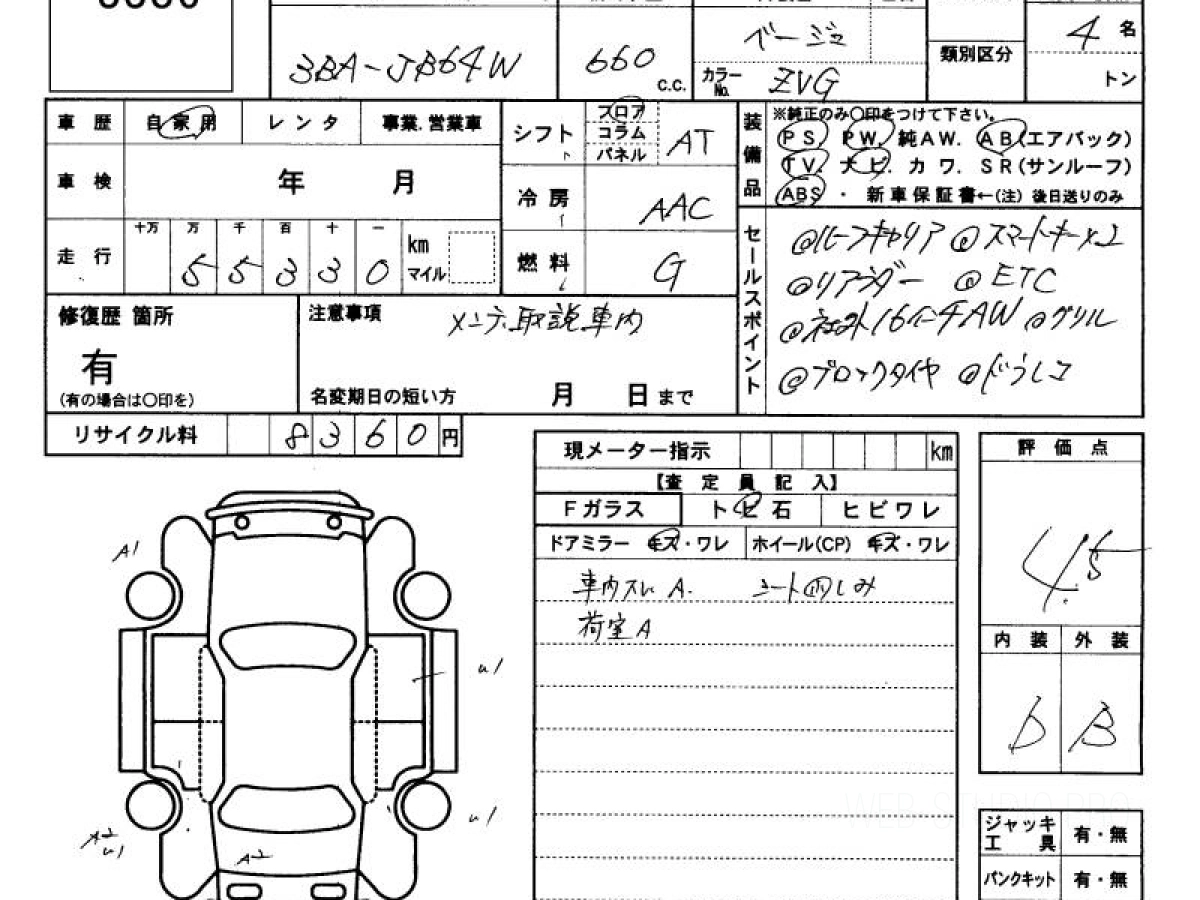 3BA-JB64W
660 c.c.
ベージュ
カラーNo. ZVG
類別区分
4 名
トン
車歴 自家用 レンタ 事業.営業車
車検 年 月
走行 十万 万 千 百 十 一
5 5 3 3 0 km マイル
シフト フロア コラム パネル AT
冷房 AAC
燃料 G
装備品
※純正のみ〇印をつけて下さい。
PS. PW. 純AW. AB(エアバック)
TV. ナビ. カワ. SR(サンルーフ)
ABS ・ 新車保証書←(注) 後日送りのみ
セールスポイント
@ルーフキャリア @スマートキー×2
@リアラダー @ETC
@社外16インチAW @グリル
@ブロックタイヤ @ドラレコ
修復歴 箇所
有
(有の場合は〇印を)
注意事項
メンテ.取説車内
名変期日の短い方 月 日まで
リサイクル料 8 3 6 0 円
現メーター指示 km
【査定員記入】
Fガラス トビ石 ヒビワレ
ドアミラー キズ・ワレ ホイール(CP) キズ・ワレ
車内スレ A. シート凹しみ
荷室A
評価点
4.5
内装 外装
b B
ジャッキ工具 有・無
パンクキット 有・無
A1
u1
u1
A2
u1
A2